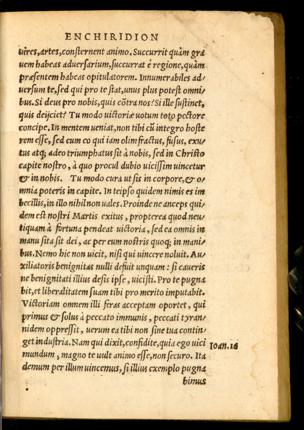 ENCHIRIDION
uires, artes, consternent animo. Succurrit quàm gra
uem habeas aduersarium, succurrat è regione, quàm
præsentem habeas opitulatorem. Innumerabiles ad-
uersum te, sed qui pro te stat, unus plus potest omni
bus. Si deus pro nobis, quis cōtra nos? Si ille sustinet,
quis deijciet? Tu modo uictoriæ uotum toto pectore
concipe. In mentem ueniat, non tibi cū integro hoste
rem esse, sed cum eo qui iam olim fractus, fusus, exu-
tus atq; adeo triumphatus sit à nobis, sed in Christo
capite nostro, à quo procul dubio uicissim uincetur
& in nobis. Tu modo cura ut sis in corpore, & o-
mnia poteris in capite. In teipso quidem nimis es im
becillis, in illo nihil non uales. Proinde ne anceps qui-
dem est nostri Martis exitus, propterea quod neu-
tiquam à fortuna pendeat uictoria, sed ea omnis in
manu sita sit dei, ac per eum nostris quoq; in mani-
bus. Nemo hic non uicit, nisi qui uincere noluit. Au-
xiliatoris benignitas nulli defuit unquam: si caueris
ne benignitati illius desis ipse, uicisti. Pro te pugna
bit, et liberalitatem suam tibi pro merito imputabit.
Victoriam omnem illi feras acceptam oportet, qui
primus & solus à peccato immunis, peccati tyran-
nidem oppressit, uerum ea tibi non sine tua contin-
get industria. Nam qui dixit, confidite, quia ego uici Ioan. 16
mundum, magno te uult animo esse, non securo. Ita
demum per illum uincemus, si illius exemplo pugna
binus